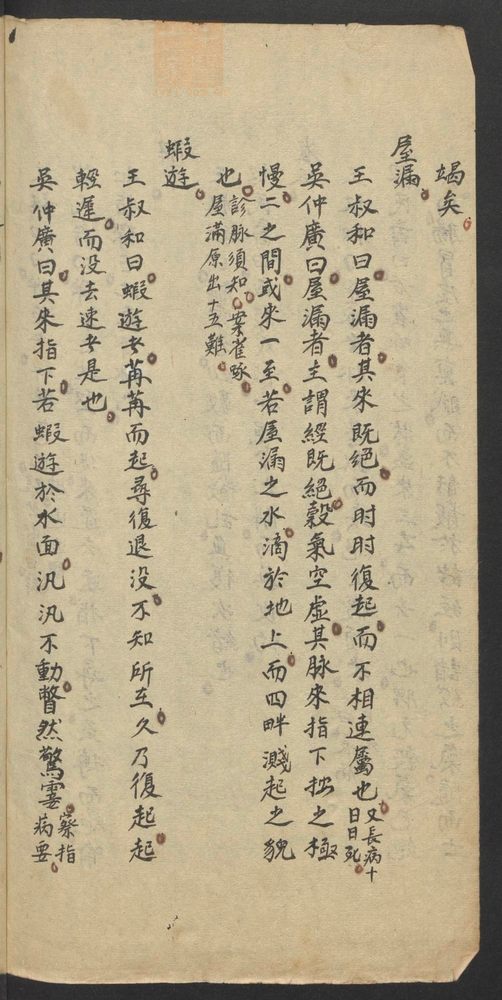 竭矣
屋漏
王叔和曰屋漏者其來既絕而时时復起而不相連屬也又長病十日日死
吳仲廣曰屋漏者主謂經既絕穀氣空虛其脉來指下按之極
慢二之間或來一至若屋漏之水滴於地上而四畔濺起之貌
也診脉須知案雀啄屋滿原出十五難
蝦遊
王叔和曰蝦遊者苒苒而起尋復退没不知所在久乃復起起
輕遲而没去速者是也
吳仲廣曰其來指下若蝦遊於水面汎汎不動瞥然驚霎察指病要